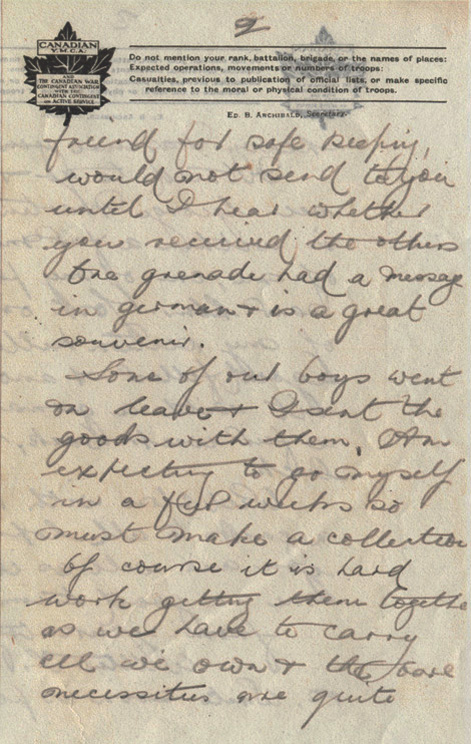 2
CANADIAN
Y.M.C.A.
AND
THE CANADIAN WAR
CONTINGENT ASSOCIATION
WITH THE
CANADIAN CONTINGENT
ON ACTIVE SERVICE
Do not mention your rank, battalion, brigade, or the names of places:
Expected operations, movements or numbers of troops:
Casualties, previous to publication of official lists, or make specific
reference to the moral or physical condition of troops.
ED. B. ARCHIBALD, Secretary.
friend for safe keeping,
would not send to you
until I hear whether
you received the others
the grenade had a message
in german & is a great
souvenir.
Some of our boys went
on leave & I sent the
goods with them. Am
expecting to go myself
in a few weeks so
must make a collection
of course it is hard
work getting them together
as we have to carry
all we own & the bare
necessities are quite